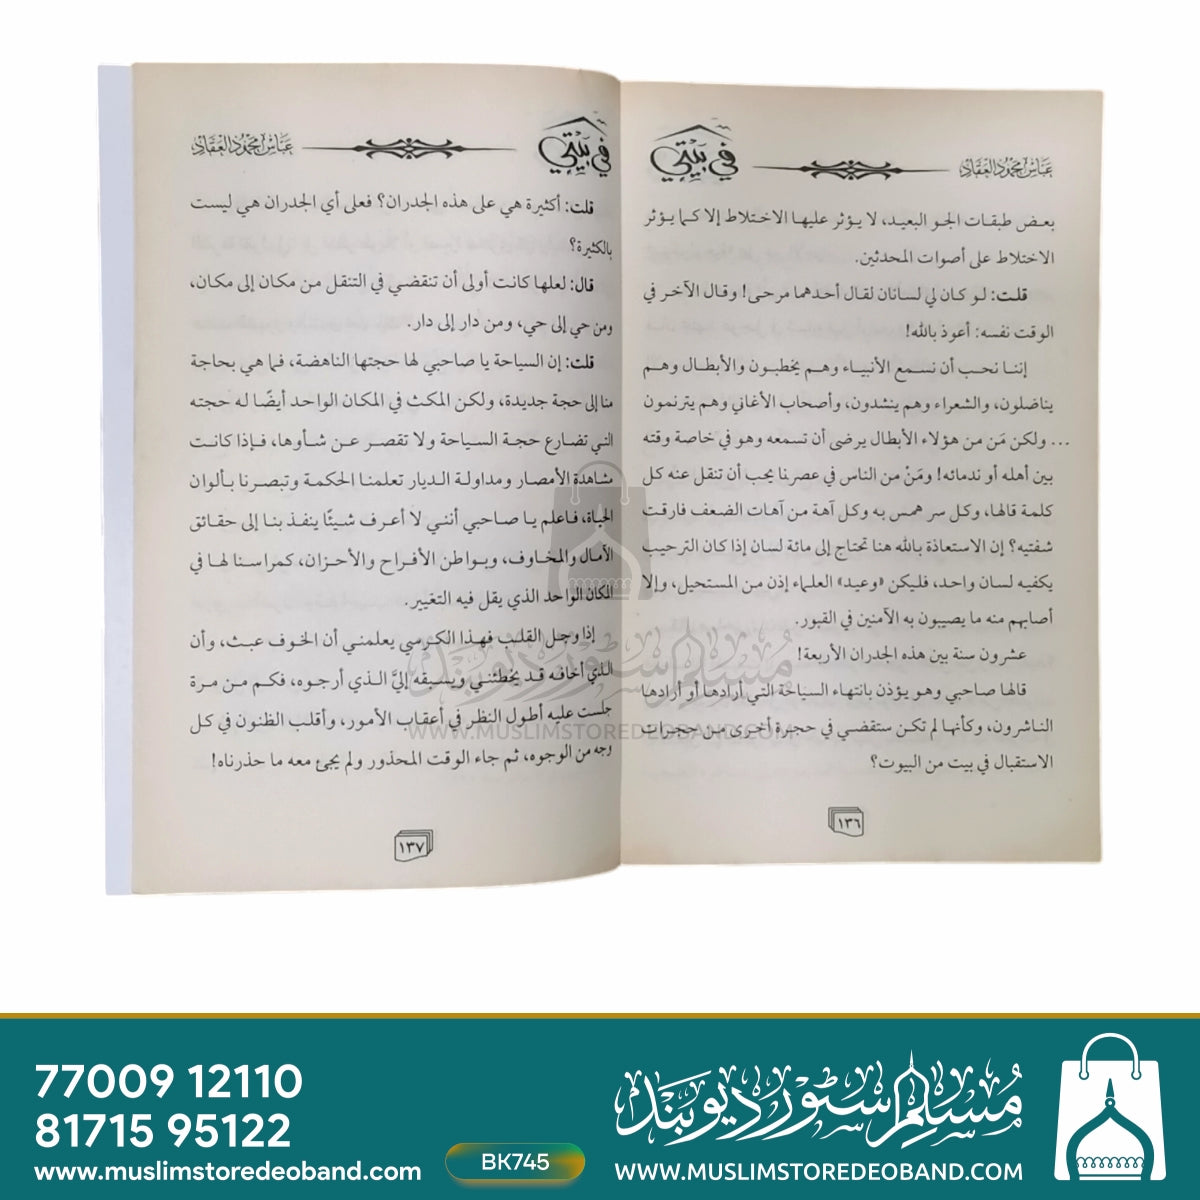 في بيتي
عباس محمود العقاد
بعض طبقات الجو البعيد، لا يؤثر عليها الاختلاط إلا كما يؤثر
الاختلاط على أصوات المحدثين.
قلت: لو كان لي لسانان لقال أحدهما مرحى! وقال الآخر في
الوقت نفسه: أعوذ بالله!
إننا نحب أن نسمع الأنبياء وهم يخطبون والأبطال وهم
يناضلون، والشعراء وهم ينشدون، وأصحاب الأغاني وهم يترنمون
... ولكن مَن من هؤلاء الأبطال يرضى أن تسمعه وهو في خاصة وقته
بين أهله أو ندمائه! ومَنْ من الناس في عصرنا يحب أن تنقل عنه كل
كلمة قالها، وكل سر همس به وكل آهة من آهات الضعف فارقت
شفتيه؟ إن الاستعاذة بالله هنا تحتاج إلى مائة لسان إذا كان الترحيب
يكفيه لسان واحد، فليكن «وعيد» العلماء إذن من المستحيل، وإلا
أصابهم منه ما يصيبون به الآمنين في القبور.
عشرون سنة بين هذه الجدران الأربعة!
قالها صاحبي وهو يؤذن بانتهاء السياحة التي أرادها أو أرادها
الناشرون، وكأنها لم تكن ستقضي في حجرة أخرى من حجرات
الاستقبال في بيت من البيوت؟
١٣٦
في بيتي
عباس محمود العقاد
قلت: أكثيرة هي على هذه الجدران؟ فعلى أي الجدران هي ليست
بالكثيرة؟
قال: لعلها كانت أولى أن تنقضي في التنقل من مكان إلى مكان،
ومن حي إلى حي، ومن دار إلى دار.
قلت: إن السياحة يا صاحبي لها حجتها الناهضة، فما هي بحاجة
منا إلى حجة جديدة، ولكن المكث في المكان الواحد أيضًا له حجته
التي تضارع حجة السياحة ولا تقصر عن شأوها، فإذا كانت
مشاهدة الأمصار ومداولة الديار تعلمنا الحكمة وتبصرنا بألوان
الحياة، فاعلم يا صاحبي أنني لا أعرف شيئًا ينفذ بنا إلى حقائق
الآمال والمخاوف، وبواطن الأفراح والأحزان، كمراسنا لها في
المكان الواحد الذي يقل فيه التغيير.
إذا وجل القلب فهذا الكرسي يعلمني أن الخوف عبث، وأن
الذي أخافه قد يخطئني ويسبقه إليَّ الذي أرجوه، فكم من مرة
جلست عليه أطول النظر في أعقاب الأمور، وأقلب الظنون في كل
وجه من الوجوه، ثم جاء الوقت المحذور ولم يجئ معه ما حذرناه!
١٣٧
مسلم سٹور دیوبند
WWW.MUSLIMSTOREDEOBAND.COM
77009 12110
81715 95122
www.muslimstoredeoband.com
BK745
مسلم سٹور دیوبند
WWW.MUSLIMSTOREDEOBAND.COM